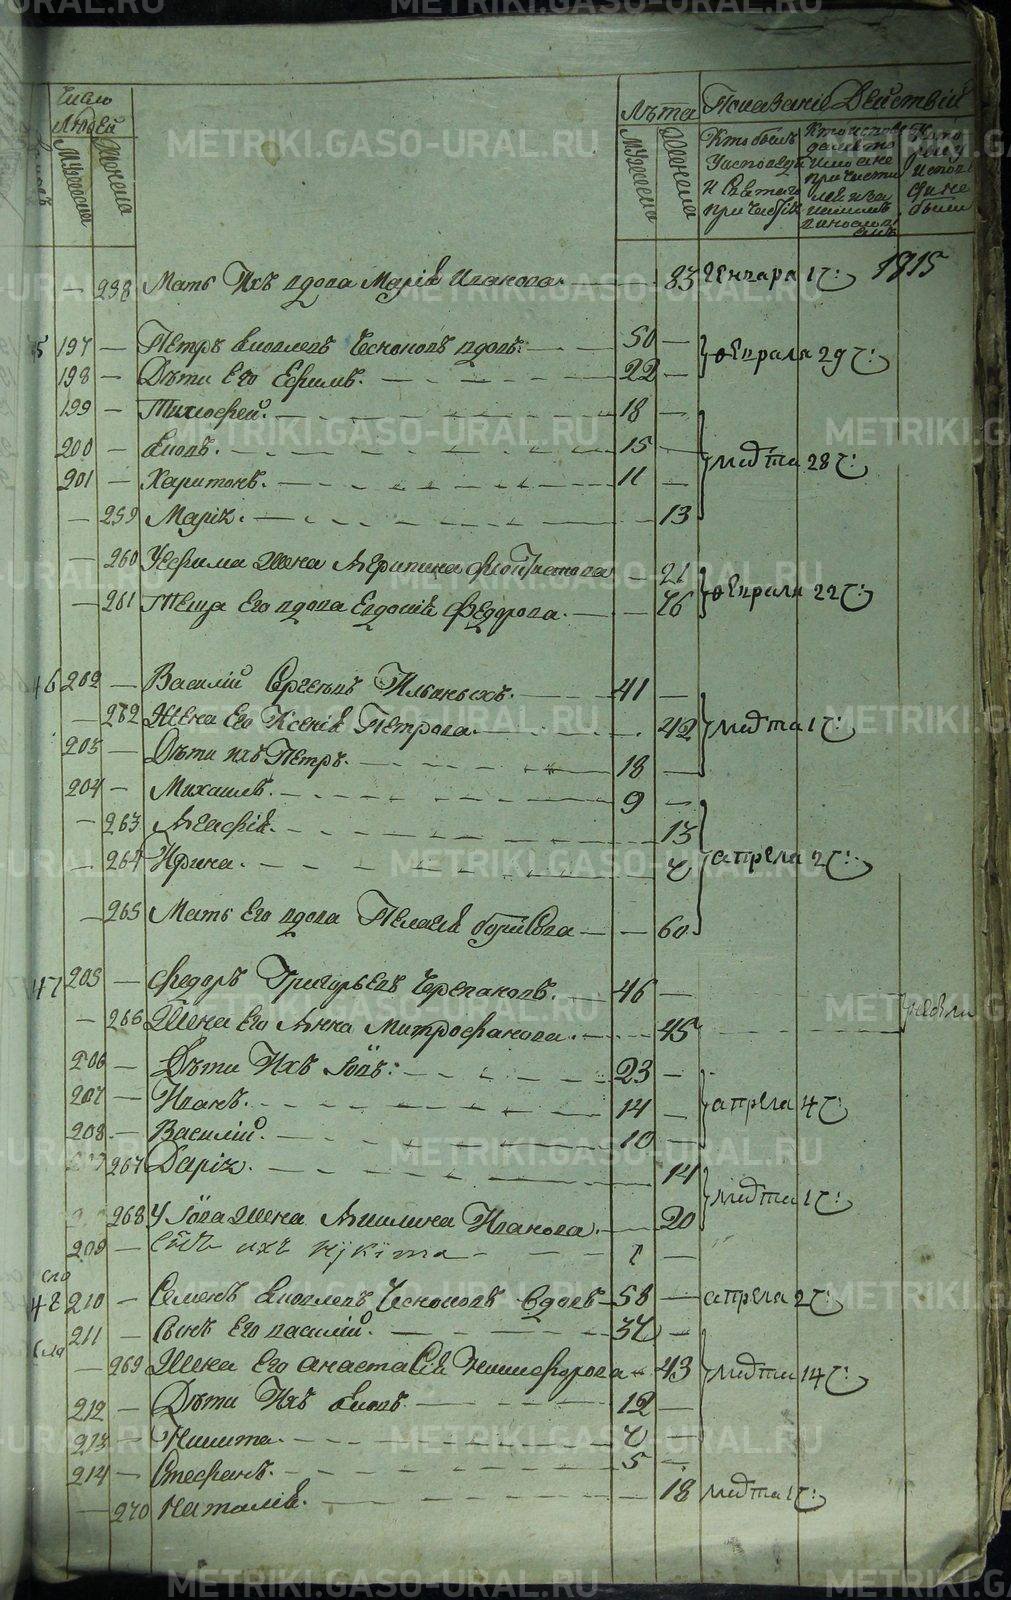 Число Людей
Мужеска Женска
Лѣта
Мужеска Женска
Показаніе Действій
Кто былъ У исповѣди И Святаго причастія
— 258 Мать Ихъ вдова Марія Иванова. — 83 Генваря 1 ч: 1815
197 — Петръ Яковлевъ вдовъ: — 50 —
198 — Дѣти Его Ефимъ. — 22 — февраля 29 ч:
199 — Тимофей. — 18 —
200 — Яковъ. — 15 —
201 — Харитонъ. — 11 — марта 28 ч:
— 259 Марія. — 13
— 260 У Ефима жена — 21
— 261 Теща Его вдова Евдокія Федорова. — 76 февраля 22 ч:
46 202 — Василий Сергеевъ Ильиныхъ. — 41 —
— 262 Жена Его Ксенія Петрова. — 42 марта 1 ч:
203 — Дѣти ихъ Петръ. — 18 —
204 — Михаилъ. — 9 —
— 263 Агафія. — 13
— 264 Ирина. — 7 апреля 2 ч:
— 265 Мать Его вдова Пелагея Борисова — — 60
47 205 — Федоръ Григорьевъ Черепановъ. — 46 —
— 266 Жена Его Анна Митрофанова. — 45
206 — Дѣти Ихъ Іовъ: — 23 —
207 — Иванъ. — 14 — апреля 4 ч:
208 — Василий. — 10 —
267 Дарія. — 14 марта 1 ч:
268 У Іова жена Акилина Иванова. — 20
209 — Сынъ ихъ Никита — 1 —
48 210 — Семенъ Яковлевъ вдовъ — 58 — апреля 2 ч:
211 — Сынъ Его Василий. — 37 —
— 269 Жена Его Анастасія Никифорова — 43 марта 14 ч:
212 — Дѣти Ихъ Яковъ. — 12 —
213 — Никита. — 7 —
214 — Стефанъ. — 5 —
— 270 Наталія. — 18 марта 1 ч:
METRIKI.GASO-URAL.RU